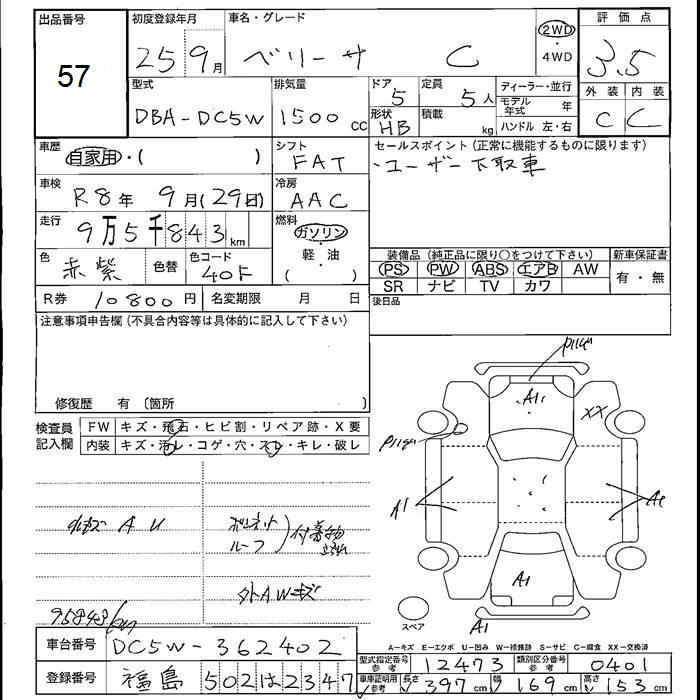 出品番号 初度登録年月 車名・グレード 評価点
57 25年9月 ベリーサ C 2WD・4WD 3.5
型式 排気量 ドア 定員 ディーラー・並行 外装 内装
DBA-DC5W 1500cc 5 5人 モデル年式 年 C C
形状 HB 積載 kg ハンドル 左・右
車歴 自家用・( ) シフト FAT セールスポイント(正常に機能するものに限ります)
・ユーザー下取車
車検 R8年 9月(29日) 冷房 AAC
走行 9万5千843km 燃料 ガソリン・軽・油( )
色 赤紫 色替 色コード 40F
装備品(純正品に限り○をつけて下さい) 新車保証書
PS PW ABS エアB AW 有・無
SR ナビ TV カワ
R券 10800円 名変期限 月 日 後日品
注意事項申告欄(不具合内容等は具体的に記入して下さい)
修復歴 有 〔箇所
検査員記入欄 FW キズ・飛石・ヒビ割・リペア跡・X要
内装 キズ・汚レ・コゲ・穴・スレ・キレ・破レ
A U ボンネット ルーフ 付着物
外AWキズ
95843km
A1 XX
A1
A1
スペア A1
A-キズ E-エクボ U-凹み W-補修跡 S-サビ C-腐食 XX-交換済
車台番号 DC5W-362402
型式指定番号 参考 12473 類別区分番号 参考 0401
登録番号 福島 502 は 2347
車庫証明用 参考 長さ 397cm 幅 169cm 高さ 153cm